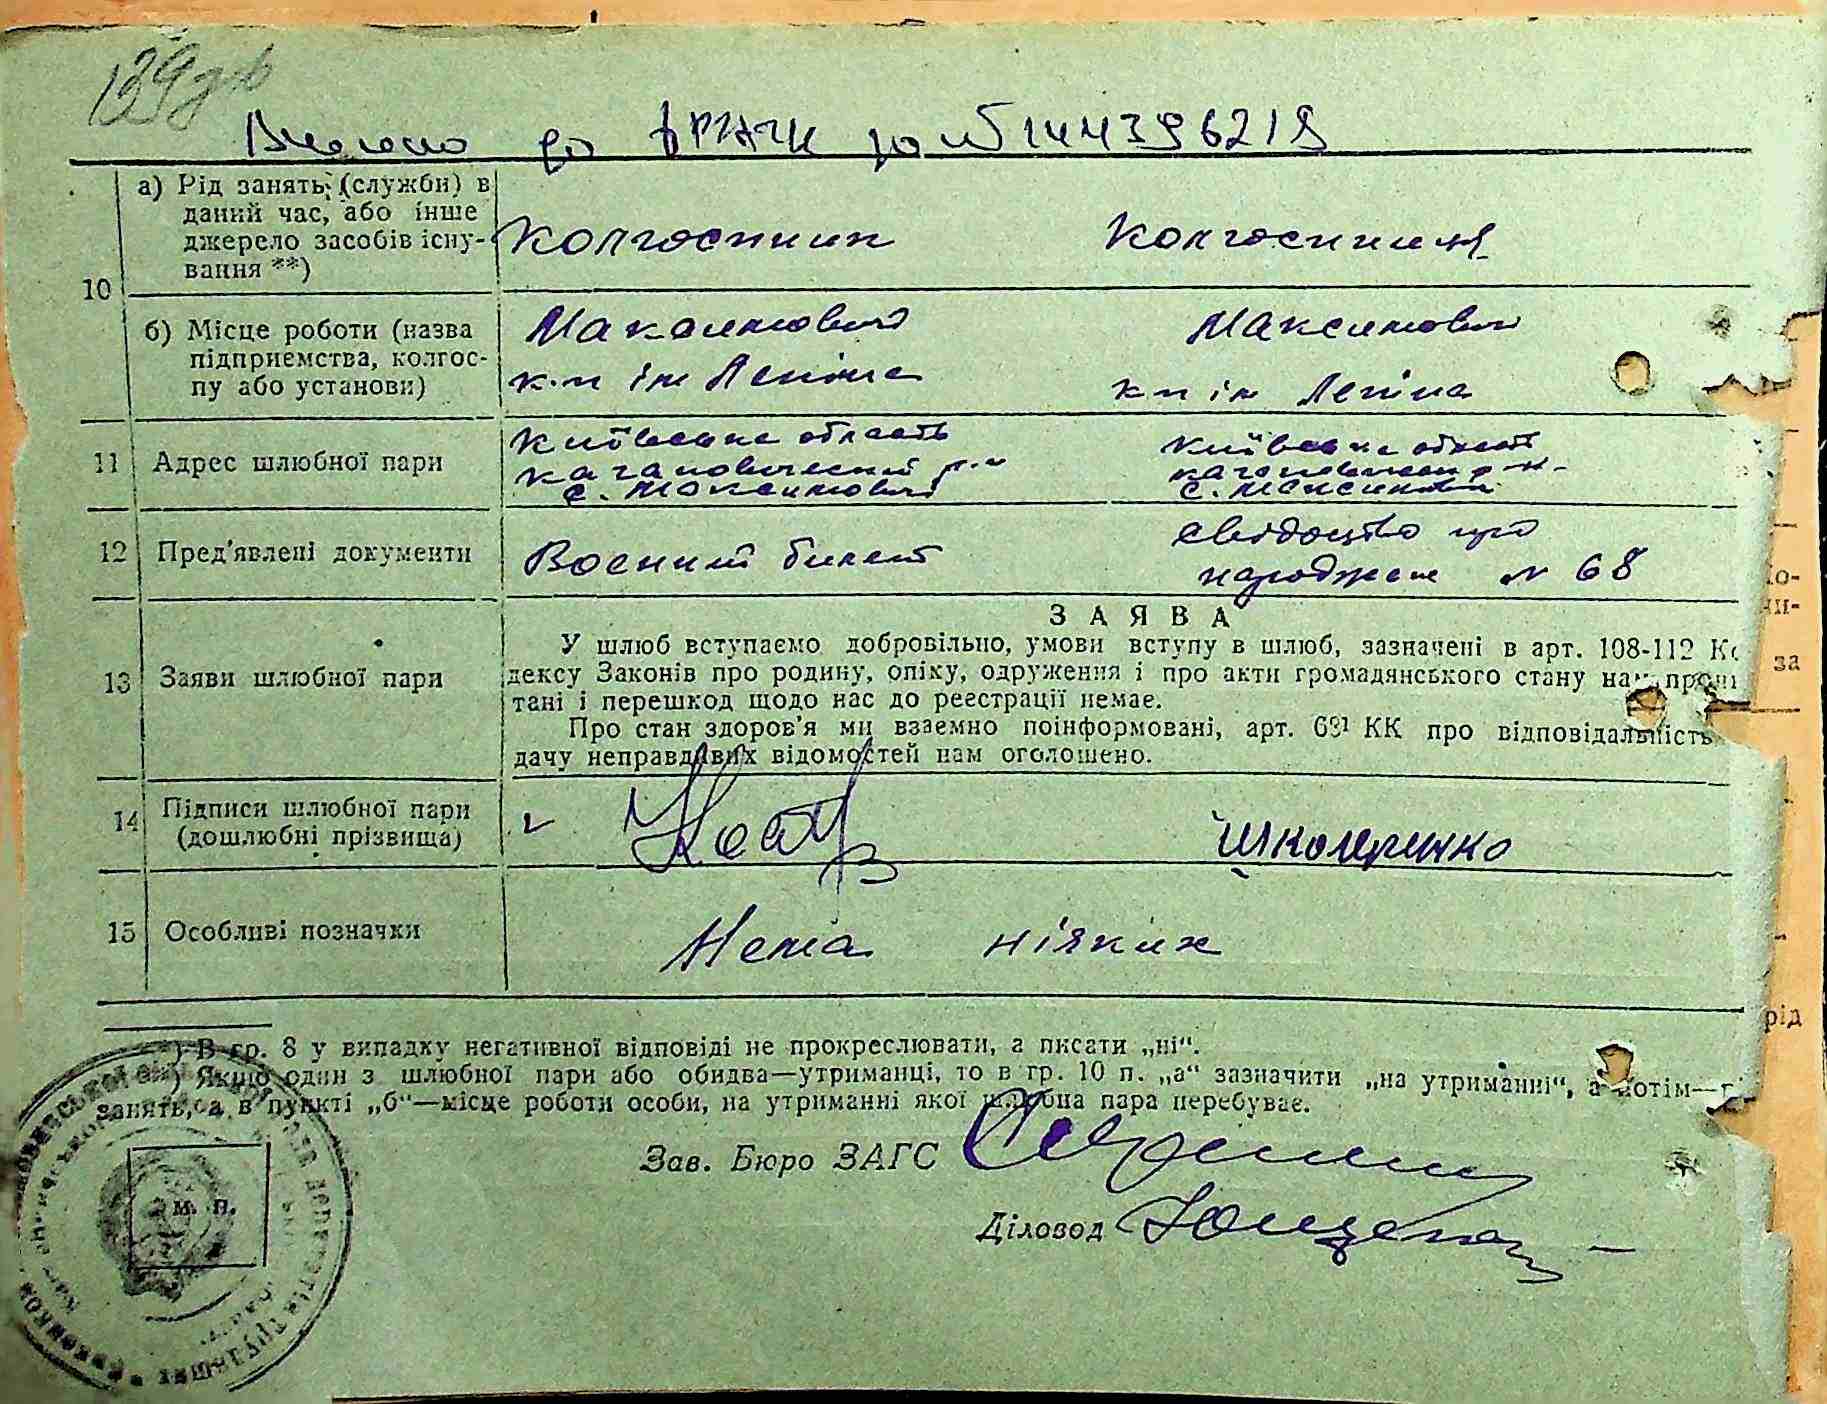 139 дв
Внесено до ДРАЦС за № 144396219
10
а) Рід занять (служби) в
даний час, або інше
джерело засобів існу-
вання **)
Колгоспник Колгоспниця
б) Місце роботи (назва
підприємства, колгос-
пу або установи)
Максимовичі Максимовичі
к-п ім Леніна к-п ім Леніна
11 Адрес шлюбної пари
Київська область Київська область
Кагановический р-н Кагановический р-н
с. Максимовичі с. Максимовичі
12 Пред'явлені документи
Военний билет
свідоцтво про
народжене № 68
13 Заяви шлюбної пари
ЗАЯВА
У шлюб вступаємо добровільно, умови вступу в шлюб, зазначені в арт. 108-112 Ко
дексу Законів про родину, опіку, одруження і про акти громадянського стану нам прочи
тані і перешкод щодо нас до реєстрації немає.
Про стан здоров'я ми взаємно поінформовані, арт. 68¹ КК про відповідальність
дачу неправдивих відомостей нам оголошено.
14 Підписи шлюбної пари
(дошлюбні прізвища)
Школяренко
15 Особливі позначки
Нема ніяких
) В гр. 8 у випадку негативної відповіді не прокреслювати, а писати „ні“.
) Якщо один з шлюбної пари або обидва—утриманці, то в гр. 10 п. „а“ зазначити „на утриманні“, а потім—р
занять, а в пункті „б“—місце роботи особи, на утриманні якої шлюбна пара перебуває.
Зав. Бюро ЗАГС
Діловод
м. п.
за
рід